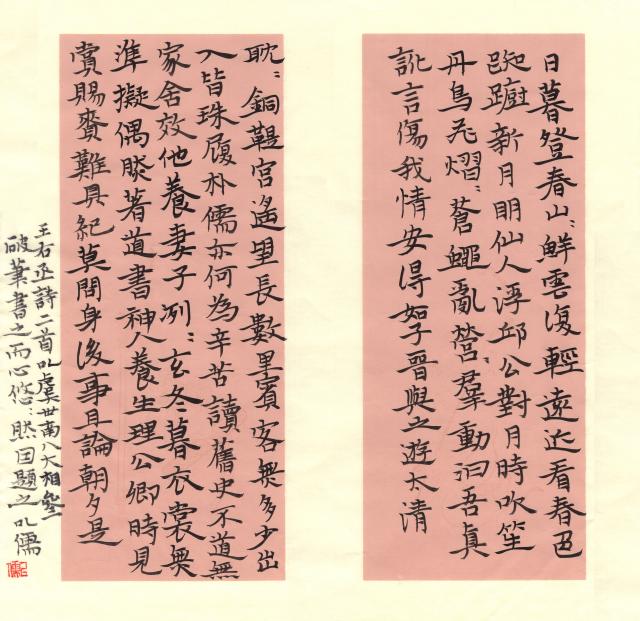 日暮登春山〻鮮雲復輕遠近看春色
踟躕新月明仙人浮邱公對月時吹笙
丹鳥飛熠〻蒼蠅亂營〻羣動汩吾真
訛言傷我情安得如子晉與之遊太清
耽〻銅鞮宮遙望長數里賓客無多少出
入皆珠履朴儒亦何為辛苦讀舊史不道無
家舍效他養妻子冽〻玄冬暮衣裳無
準擬偶然著道書神人養生理公卿時見
賞賜賚難具紀莫問身後事且論朝夕是
王右丞詩二首以虞世南八大相參
破筆書之而心悠〻然因題之以儒